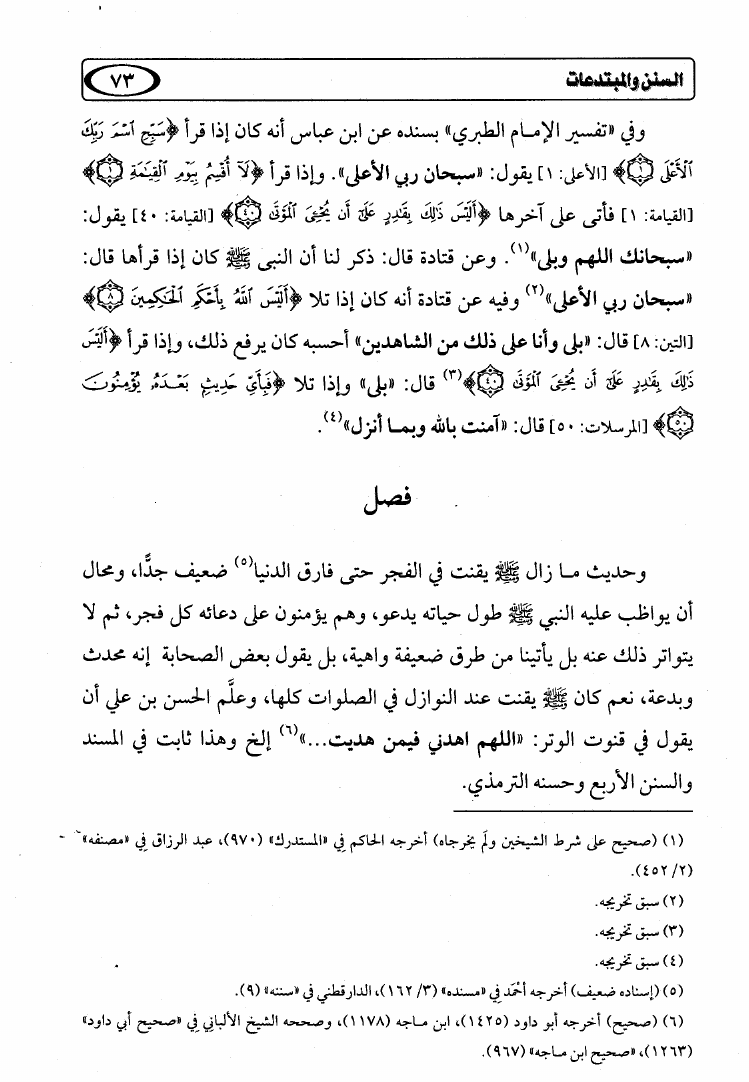 السنن والمبتدعات
٧٣
وفي «تفسير الإمـام الطبري» بسنده عن ابن عباس أنه كان إذا قرأ ﴿سَبِّحِ ٱسْمَ رَبِّكَ
ٱلْأَعْلَى ۝١﴾ [الأعلى: ١] يقول: «سبحان ربي الأعلى». وإذا قرأ ﴿لَآ أُقْسِمُ بِيَوْمِ ٱلْقِيَـٰمَةِ ۝١﴾
[القيامة: ١] فأتى على آخرها ﴿أَلَيْسَ ذَٰلِكَ بِقَـٰدِرٍ عَلَىٰٓ أَن يُحْـِۧىَ ٱلْمَوْتَىٰ ۝٤٠﴾ [القيامة: ٤٠] يقول:
«سبحانك اللهم وبلى»(١). وعن قتادة قال: ذكر لنا أن النبي ﷺ كان إذا قرأها قال:
«سبحان ربي الأعلى»(٢) وفيه عن قتادة أنه كان إذا تلا ﴿أَلَيْسَ ٱللَّهُ بِأَحْكَمِ ٱلْحَـٰكِمِينَ ۝٨﴾
[التين: ٨] قال: «بلى وأنا على ذلك من الشاهدين» أحسبه كان يرفع ذلك، وإذا قرأ ﴿أَلَيْسَ
ذَٰلِكَ بِقَـٰدِرٍ عَلَىٰٓ أَن يُحْـِۧىَ ٱلْمَوْتَىٰ ۝٤٠﴾(٣) قال: «بلى» وإذا تلا ﴿فَبِأَىِّ حَدِيثٍۭ بَعْدَهُۥ يُؤْمِنُونَ
۝٥٠﴾ [المرسلات: ٥٠] قال: «آمنت بالله وبمـا أنزل»(٤).
فصل
وحديث مـا زال ﷺ يقنت في الفجر حتى فارق الدنيا(٥) ضعيف جدًّا، ومحال
أن يواظب عليه النبي ﷺ طول حياته يدعو، وهم يؤمنون على دعائه كل فجر، ثم لا
يتواتر ذلك عنه بل يأتينا من طرق ضعيفة واهية، بل يقول بعض الصحابة إنه محدث
وبدعة، نعم كان ﷺ يقنت عند النوازل في الصلوات كلها، وعلَّم الحسن بن علي أن
يقول في قنوت الوتر: «اللهم اهدني فيمن هديت...»(٦) إلخ وهذا ثابت في المسند
والسنن الأربع وحسنه الترمذي.
(١) (صحيح على شرط الشيخين ولم يخرجاه) أخرجه الحاكم في «المستدرك» (٩٧٠)، عبد الرزاق في «مصنفه»
(٢/ ٤٥٢).
(٢) سبق تخريجه.
(٣) سبق تخريجه.
(٤) سبق تخريجه.
(٥) (إسناده ضعيف) أخرجه أحمد في «مسنده» (٣/ ١٦٢)، الدارقطني في «سننه» (٩).
(٦) (صحيح) أخرجه أبو داود (١٤٢٥)، ابن مـاجه (١١٧٨)، وصححه الشيخ الألباني في «صحيح أبي داود»
(١٢٦٣)، «صحيح ابن مـاجه» (٩٦٧).